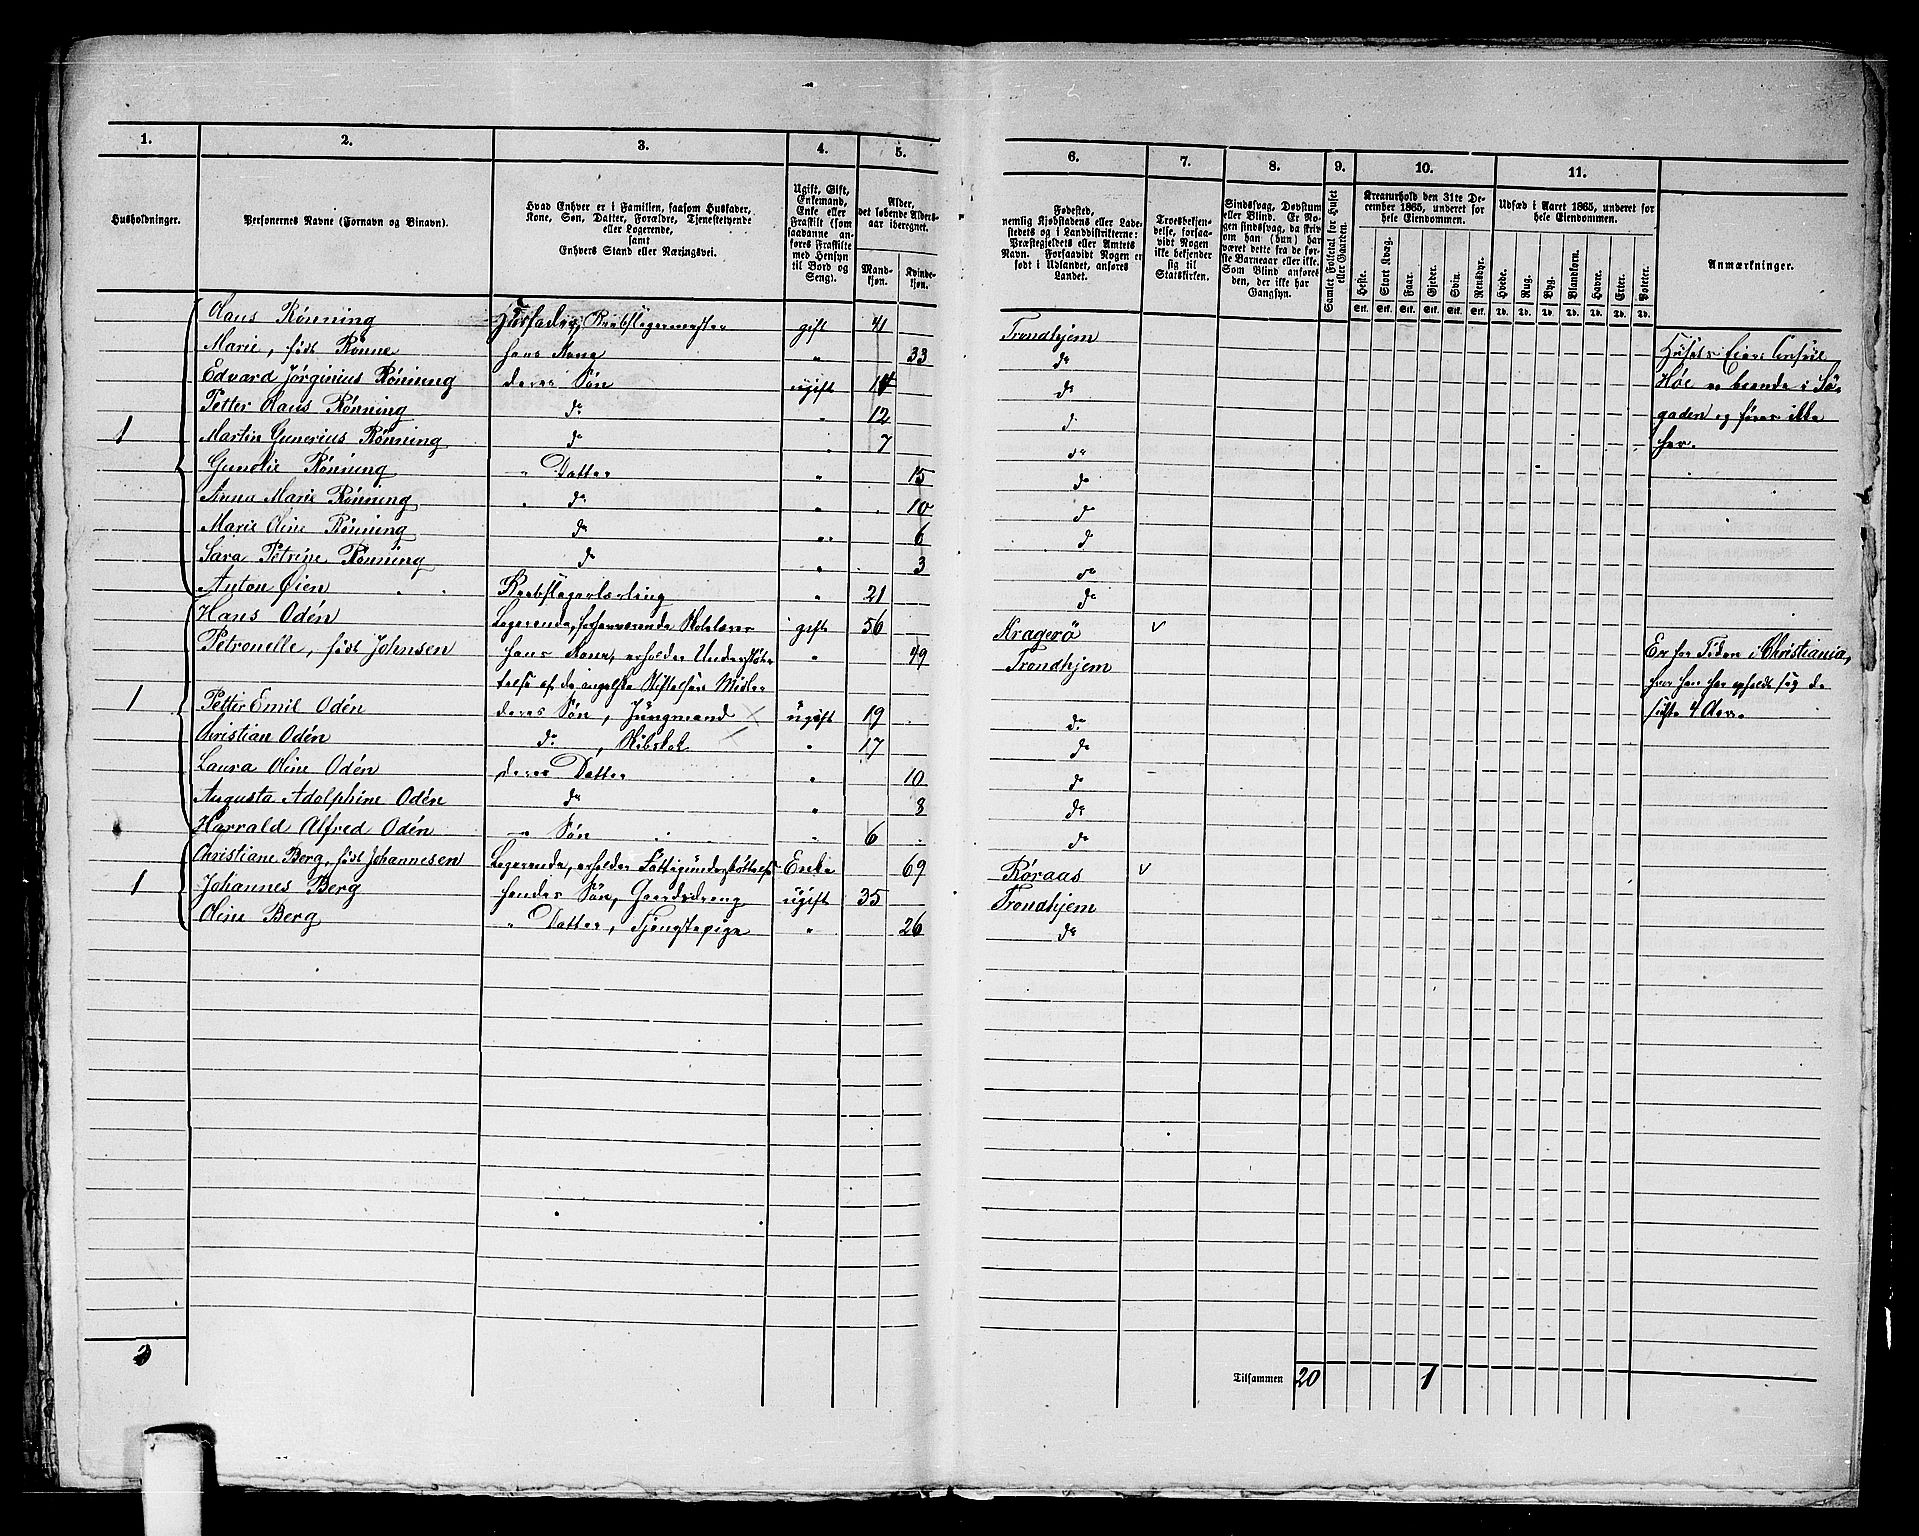 1. 2. 3. 4. 5. 6. 7. 8. 9. 10. 11.
Husholdninger.
Personernes Navne (Fornavn og Binavn).
Hvad Enhver er i Familien, saasom Husfader,
Kone, Søn, Datter, Forældre, Tjenestetyende
eller Logerende,
samt
Enhvers Stand eller Næringsvei.
Ugift, Gift,
Enkemand,
Enke eller
Fraskilt (som
saadanne an-
føres Fraskilte
med Hensyn
til Bord og
Seng).
Alder,
det løbende Alders-
aar iberegnet.
Mand-
kjøn.
Kvinde-
kjøn.
Fødested,
nemlig Kjøbstadens eller Lade-
stedets og i Landdistrikterne:
Præstegjeldets eller Amtets
Navn. Forsaavidt Nogen er
født i Udlandet, anføres
Landet.
Troesbekjen-
delse, forsaa-
vidt Nogen
ikke bekjender
sig til
Statskirken.
Sindssvag, Døvstum
eller Blind. Er No-
gen sindssvag, da skriv
om han (hun) har
været dette fra de før-
ste Barneaar eller ikke.
Som Blind anføres
den, der ikke har
Gangsyn.
Samlet Folketal for Huset
eller Gaarden.
Kreaturhold den 31te De-
cember 1865, underet for
hele Eiendommen.
Heste. Stort Kvæg. Faar. Gjeder. Svin. Rensdyr.
Stk. Stk. Stk. Stk. Stk. Stk.
Udsæd i Aaret 1865, underet for
hele Eiendommen.
Hvede. Rug. Byg. Blandkorn. Havre. Erter. Poteter.
Td. Td. Td. Td. Td. Td. Td.
Anmærkninger.
Claus Rönning Husfader, Rebslagermester gift 41 Trondhjem
Marie, født Rønne hans Kone " 33 do Husets Eier Consul
Edvard Jørginius Rönning deres Søn ugift 14 do Høe er boende i Sø-
Petter Claus Rønning do " 12 d gaden og føres ikke
1 Martin Gunerius Rønning do " 7 do her.
Gunelie Rønning " Datter " 15 do
Anna Marie Rønning " do " 10 d
Marie Oline Rønning do " 6 d
Sara Petrine Rønning d " 3 do
Anton Øien Rebslagerlærling " 21 do
Hans Odén Logerende, forhenværende gift 56 Kragerö v
Petronelle, født Johnsen hans Kone, erholder Understøt- " 49 Trondhjem Er for Tiden i Christiania,
telse af Midler hvor han har opholdt sig de
1 Petter Emil Odén deres Søn, Jungmand ugift 19 do sidste 4 Aar.
Christian Odén do, " 17 do
Laura Oline Odén deres Datter " 10 do
Augusta Adolphine Odén do " 8 do
Harrald Alfred Odén " Søn " 6 do
Christiane Berg, født Johannesen Logerende, erholder Fattigunderstøttelse Enke 69 Röraas v
1 Johannes Berg hendes Søn, Gaardsdreng ugift 35 Trondhjem
Oline Berg " Datter, Tjenestepige " 26 do
3 Tilsammen 20 1